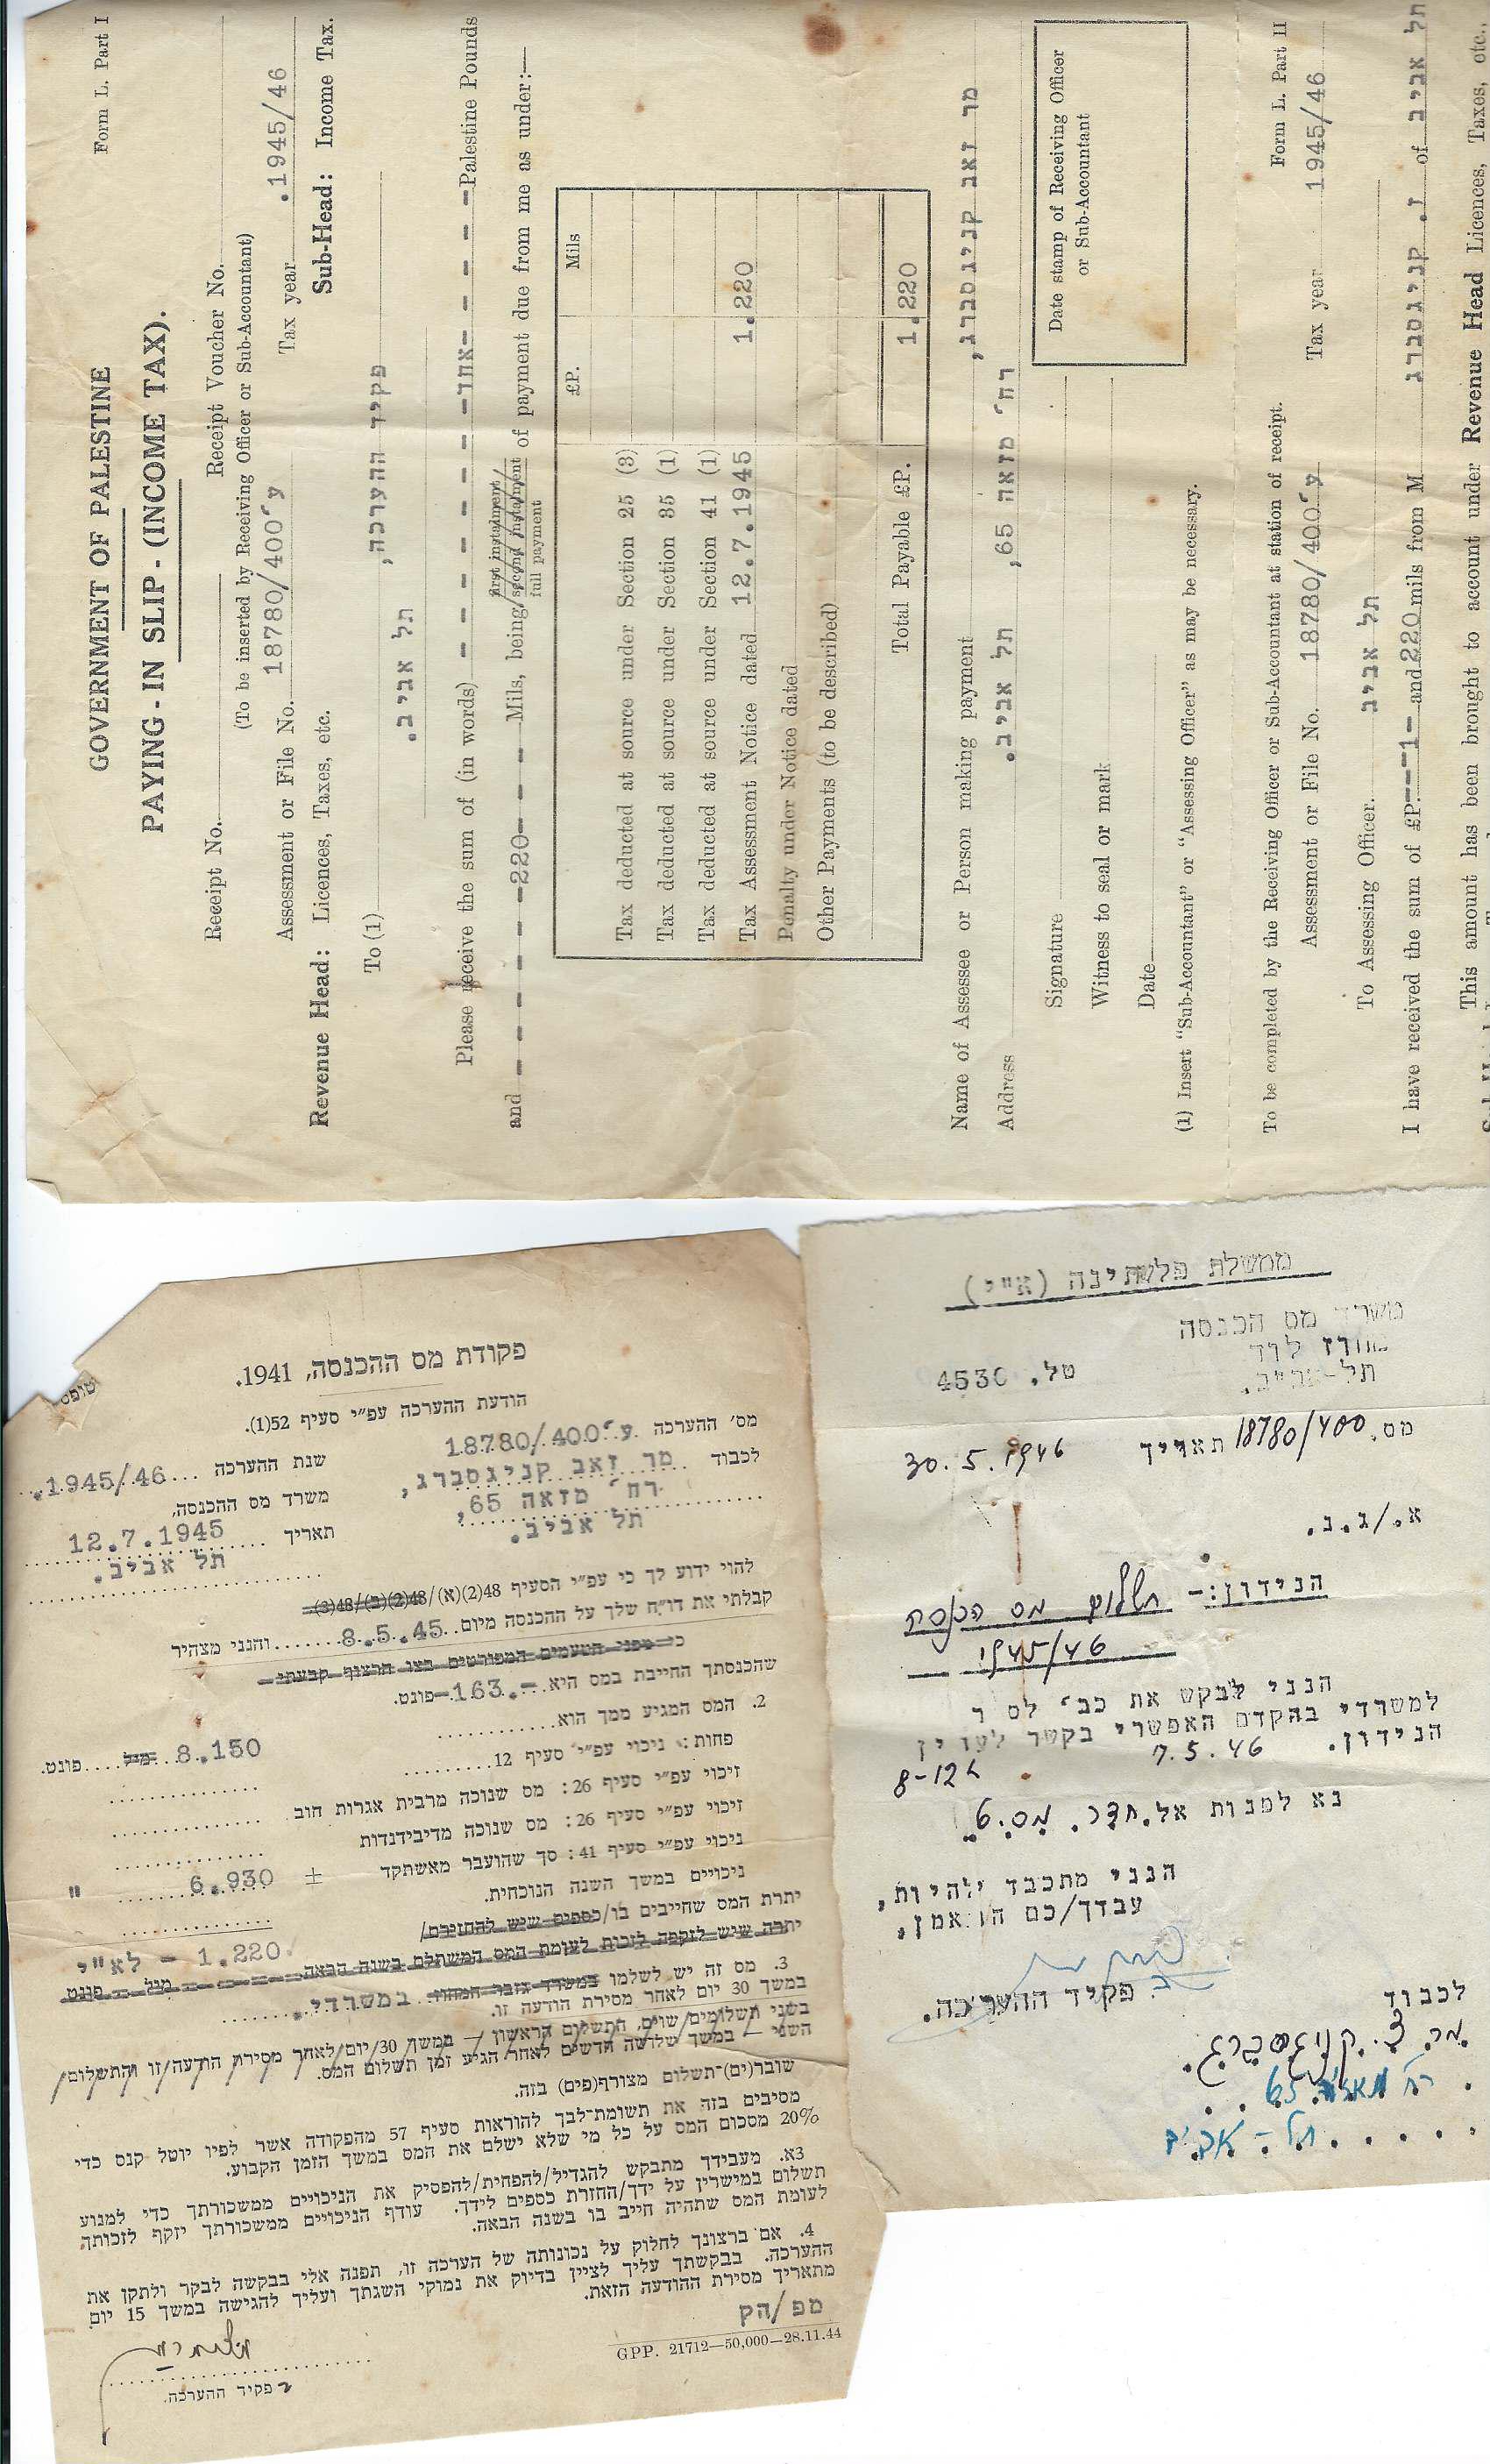 Form L. Part I
GOVERNMENT OF PALESTINE
PAYING-IN SLIP - (INCOME TAX).
Receipt No. Receipt Voucher No.
(To be inserted by Receiving Officer or Sub-Accountant)
Assessment or File No. 18780/400 ע׳ Tax year 1945/46.
Revenue Head: Licences, Taxes, etc. Sub-Head: Income Tax.
To (1) פקיד ההערכה,
תל אביב.
Please receive the sum of (in words) - - - - - - -אחד- - - - - Palestine Pounds
and - - - - - -220- - - -Mils, being first instalment/ second instalment full payment of payment due from me as under:—
£P. Mils
Tax deducted at source under Section 25 (3)
Tax deducted at source under Section 35 (1)
Tax deducted at source under Section 41 (1)
Tax Assessment Notice dated 12.7.1945 1.220
Penalty under Notice dated
Other Payments (to be described)
Total Payable £P. 1.220
Name of Assessee or Person making payment מר זאב קניגסברג,
Address רח׳ מזאה 65, תל אביב.
Signature
Witness to seal or mark
Date
Date stamp of Receiving Officer
or Sub-Accountant
(1) Insert "Sub-Accountant" or "Assessing Officer" as may be necessary.
Form L. Part II
To be completed by the Receiving Officer or Sub-Accountant at station of receipt.
Assessment or File No. 18780/400 ע׳ Tax year 1945/46
To Assessing Officer. תל אביב
I have received the sum of £P.---1-- and 220 mils from M ז. קניגסברג of תל אביב
This amount has been brought to account under Revenue Head Licences, Taxes, etc.,
טופס
פקודת מס ההכנסה, 1941.
הודעת ההערכה עפ״י סעיף 52(1).
מס׳ ההערכה ע׳ 18780/400
שנת ההערכה 1945/46.
לכבוד מר זאב קניגסברג,
רח׳ מזאה 65,
תל אביב.
משרד מס ההכנסה,
תאריך 12.7.1945
תל אביב.
להוי ידוע לך כי עפ״י הסעיף 48(2)(א)/48(2)(ב)/48(3)
קבלתי את דו״ח שלך על ההכנסה מיום 8.5.45 והנני מצהיר
כי מפני הטעמים המפורטים בצו הרצוף קבעתי
שהכנסתך החייבת במס היא 163.- פונט.
2. המס המגיע ממך הוא 8.150 מיל פונט.
פחות: ניכוי עפ״י סעיף 12
זיכוי עפ״י סעיף 26: מס שנוכה מרבית אגרות חוב
זיכוי עפ״י סעיף 26: מס שנוכה מדיבידנדות
ניכוי עפ״י סעיף 41: סך שהועבר מאשתקד ± 6.930 "
ניכויים במשך השנה הנוכחית.
יתרת המס שחייבים בו/כספים שיש להחזירם/ 1.220 - לא״י
יתרה שיש לזקפה לזכות לעומת המס המשתלם בשנה הבאה מיל פונט
3. מס זה יש לשלמו במשרד גובר המחוז במשרדי.
במשך 30 יום לאחר מסירת הודעה זו.
בשני תשלומים שוים, התשלום הראשון — במשך 30 יום לאחר מסירת הודעה זו והתשלום
השני — במשך שלושה חדשים לאחר הגיע זמן תשלום המס.
שובר(ים)־תשלום מצורף(פים) בזה.
מסיבים בזה את תשומת־לבך להוראות סעיף 57 מהפקודה אשר לפיו יוטל קנס כדי
20% מסכום המס על כל מי שלא ישלם את המס במשך הזמן הקבוע.
3א. מעבידך מתבקש להגדיל/להפחית/להפסיק את הניכויים ממשכורתך כדי למנוע
תשלום במישרין על ידך/החזרת כספים לידך. עודף הניכויים ממשכורתך יזקף לזכותך
לעומת המס שתהיה חייב בו בשנה הבאה.
4. אם ברצונך לחלוק על נכונותה של הערכה זו, תפנה אלי בבקשה לבקר ולתקן את
ההערכה. בבקשתך עליך לציין בדיוק את נמוקי השגתך ועליך להגישה במשך 15 יום
מתאריך מסירת ההודעה הזאת.
מפ/הק
פקיד ההערכה.
GPP. 21712—50,000—28.11.44
ממשלת פלשתינה (א״י)
משרד מס הכנסה
לוד
תל-אביב.
טל. 4530
מס. 18780/400 תאריך 30.5.1946
א./ג.נ.
הנידון:- תשלום מס הכנסה
1945/46
הנני לבקש את כב׳ לסור
למשרדי בהקדם האפשרי בקשר לענין
הנידון. 7.5.46
8-12
נא לפנות אל חדר מס. 6
הנני מתכבד להיות,
עבדך/כם הנאמן,
פקיד ההערכה.
לכבוד
מר צ. קניגסברג.
רח׳ מאזה 65
תל-אביב